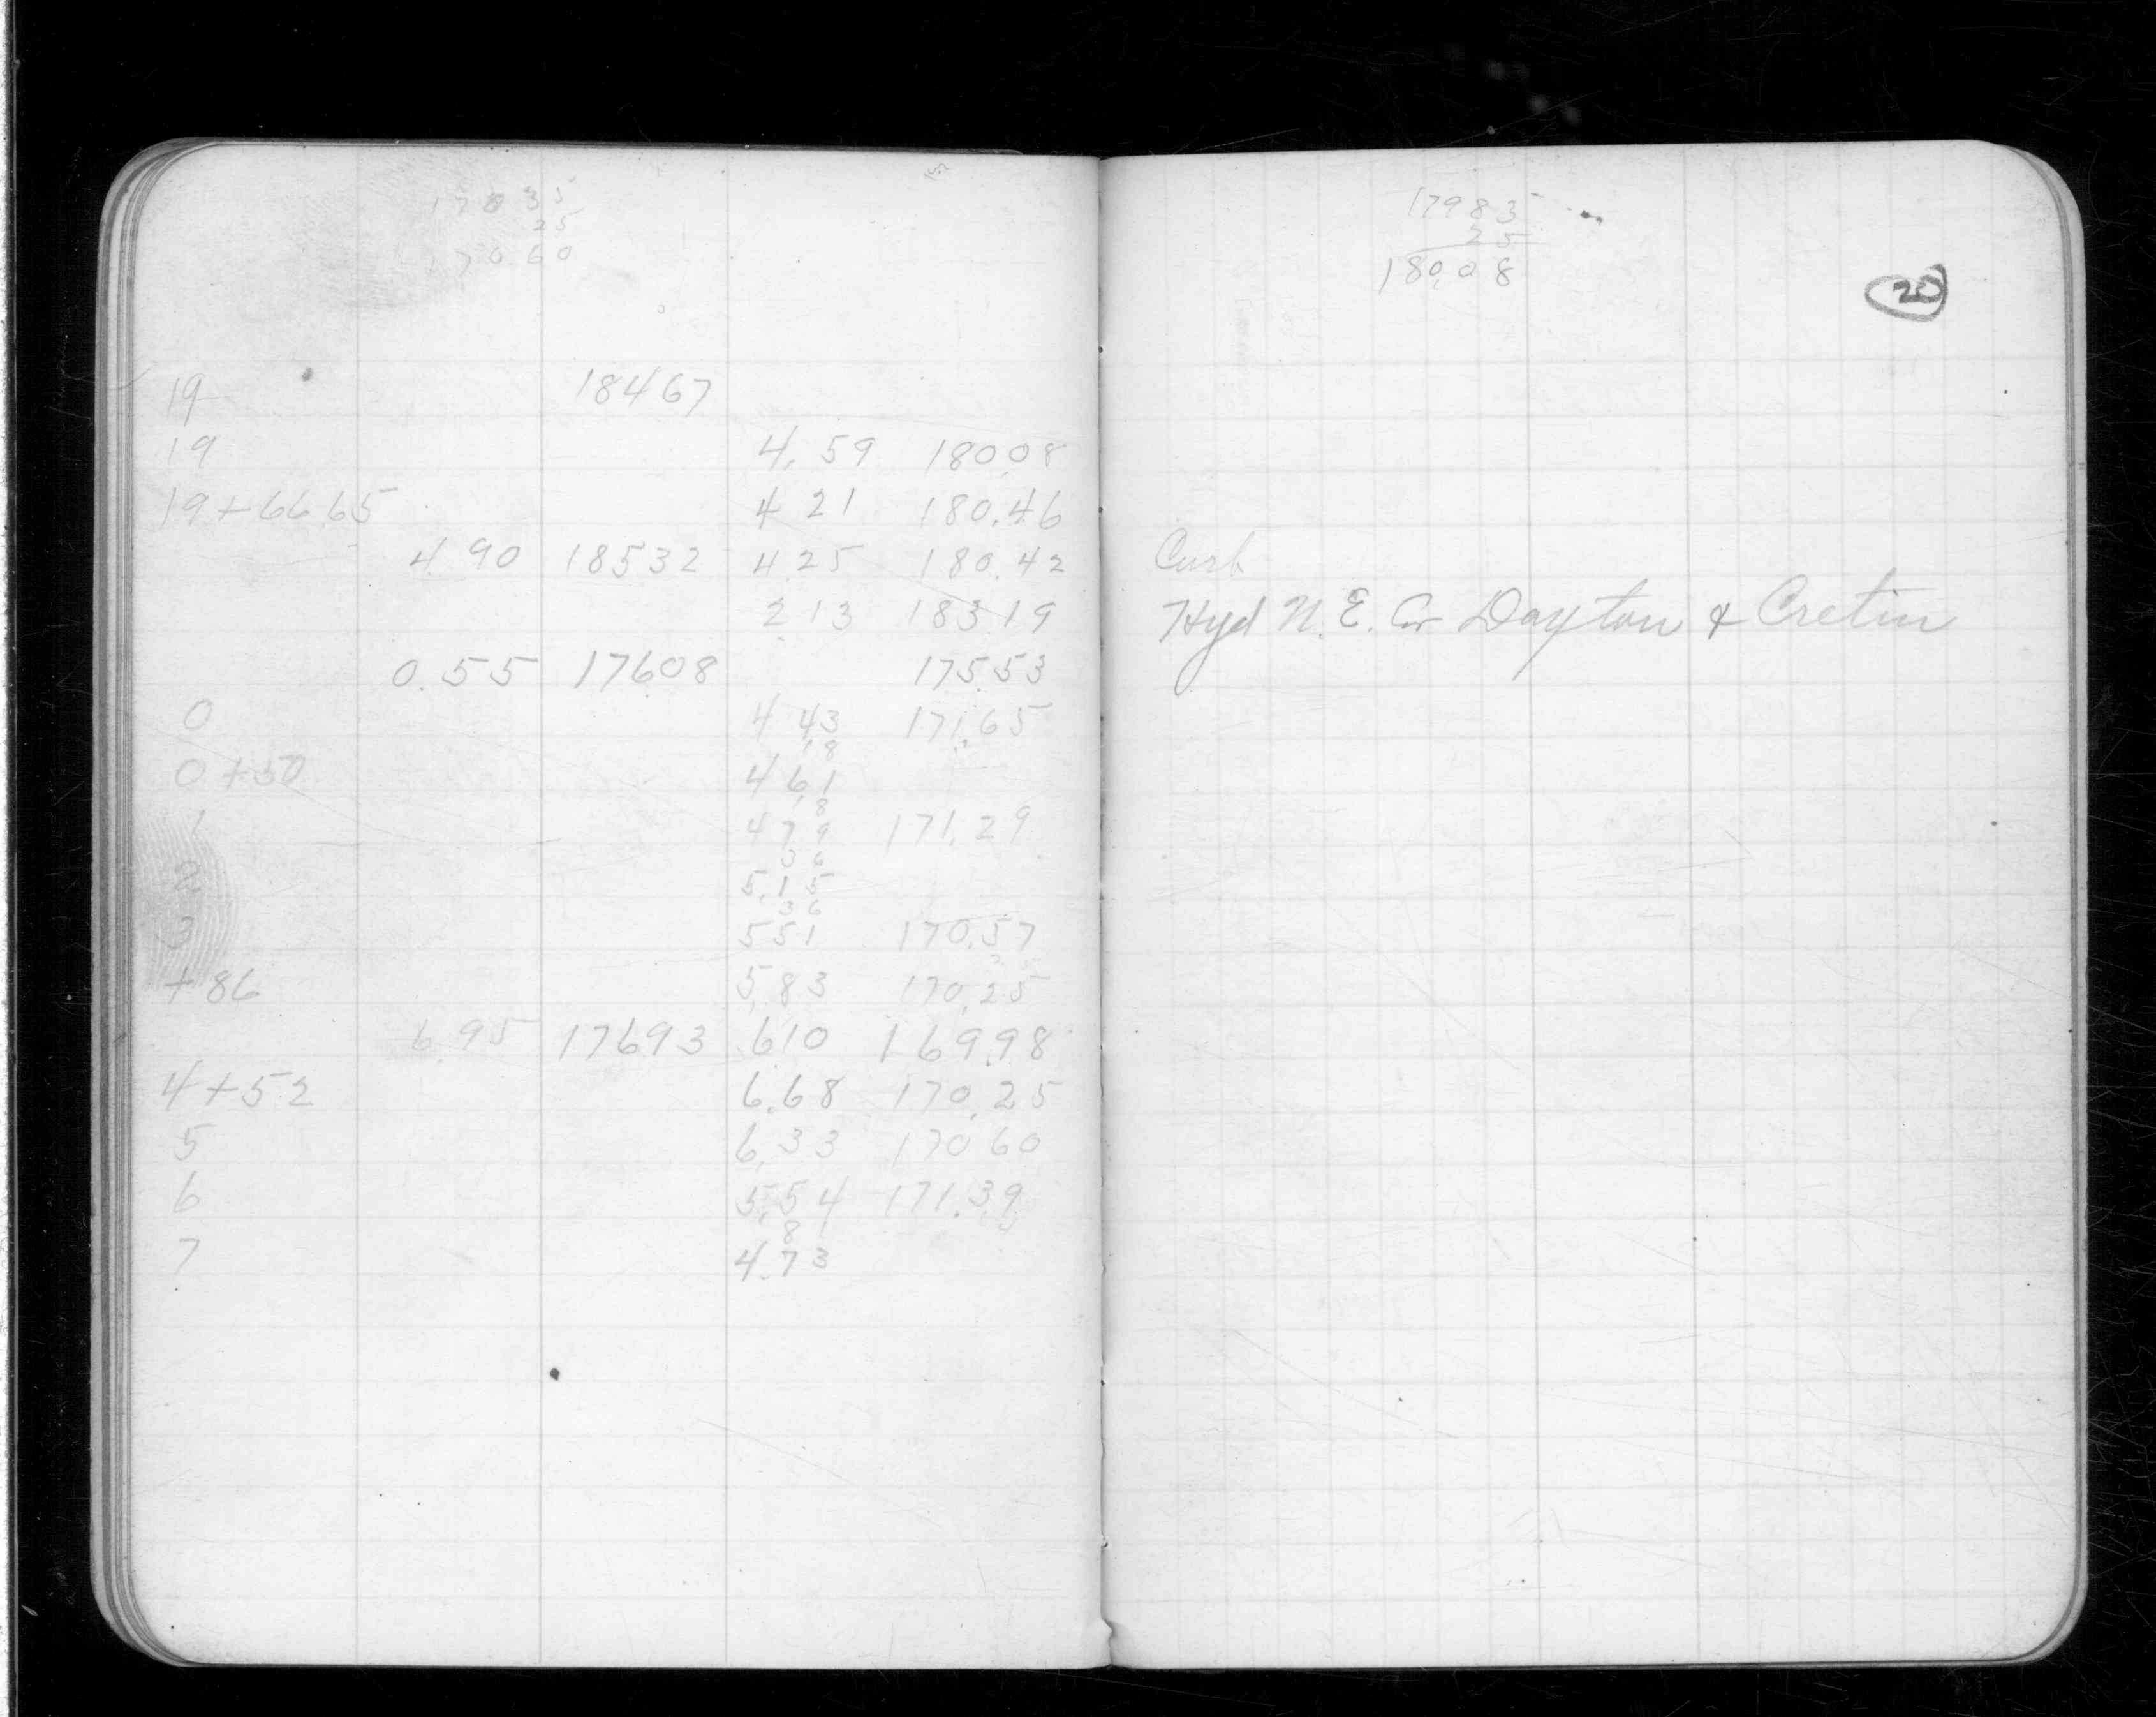 170 35
25
170 60
19 184 67
19 4.59 180.08
19+66.65 4 21 180.46
4.90 185 32 4 25 180.42
2 13 183 19
0.55 176.08 175.53
0 4 43 171.65
18
0+50 4 61
18
1 4 79 171.29
36
2 5.15
36
3 5 51 170.57
+86 5.83 170.25
6 95 176 93 6 10 169.98
4+52 6.68 170.25
5 6.33 170 60
6 5.54 171.39
81
7 4.73
179 83
25
180.08
20
Curb
Hyd N.E. Cor Dayton & Cretin